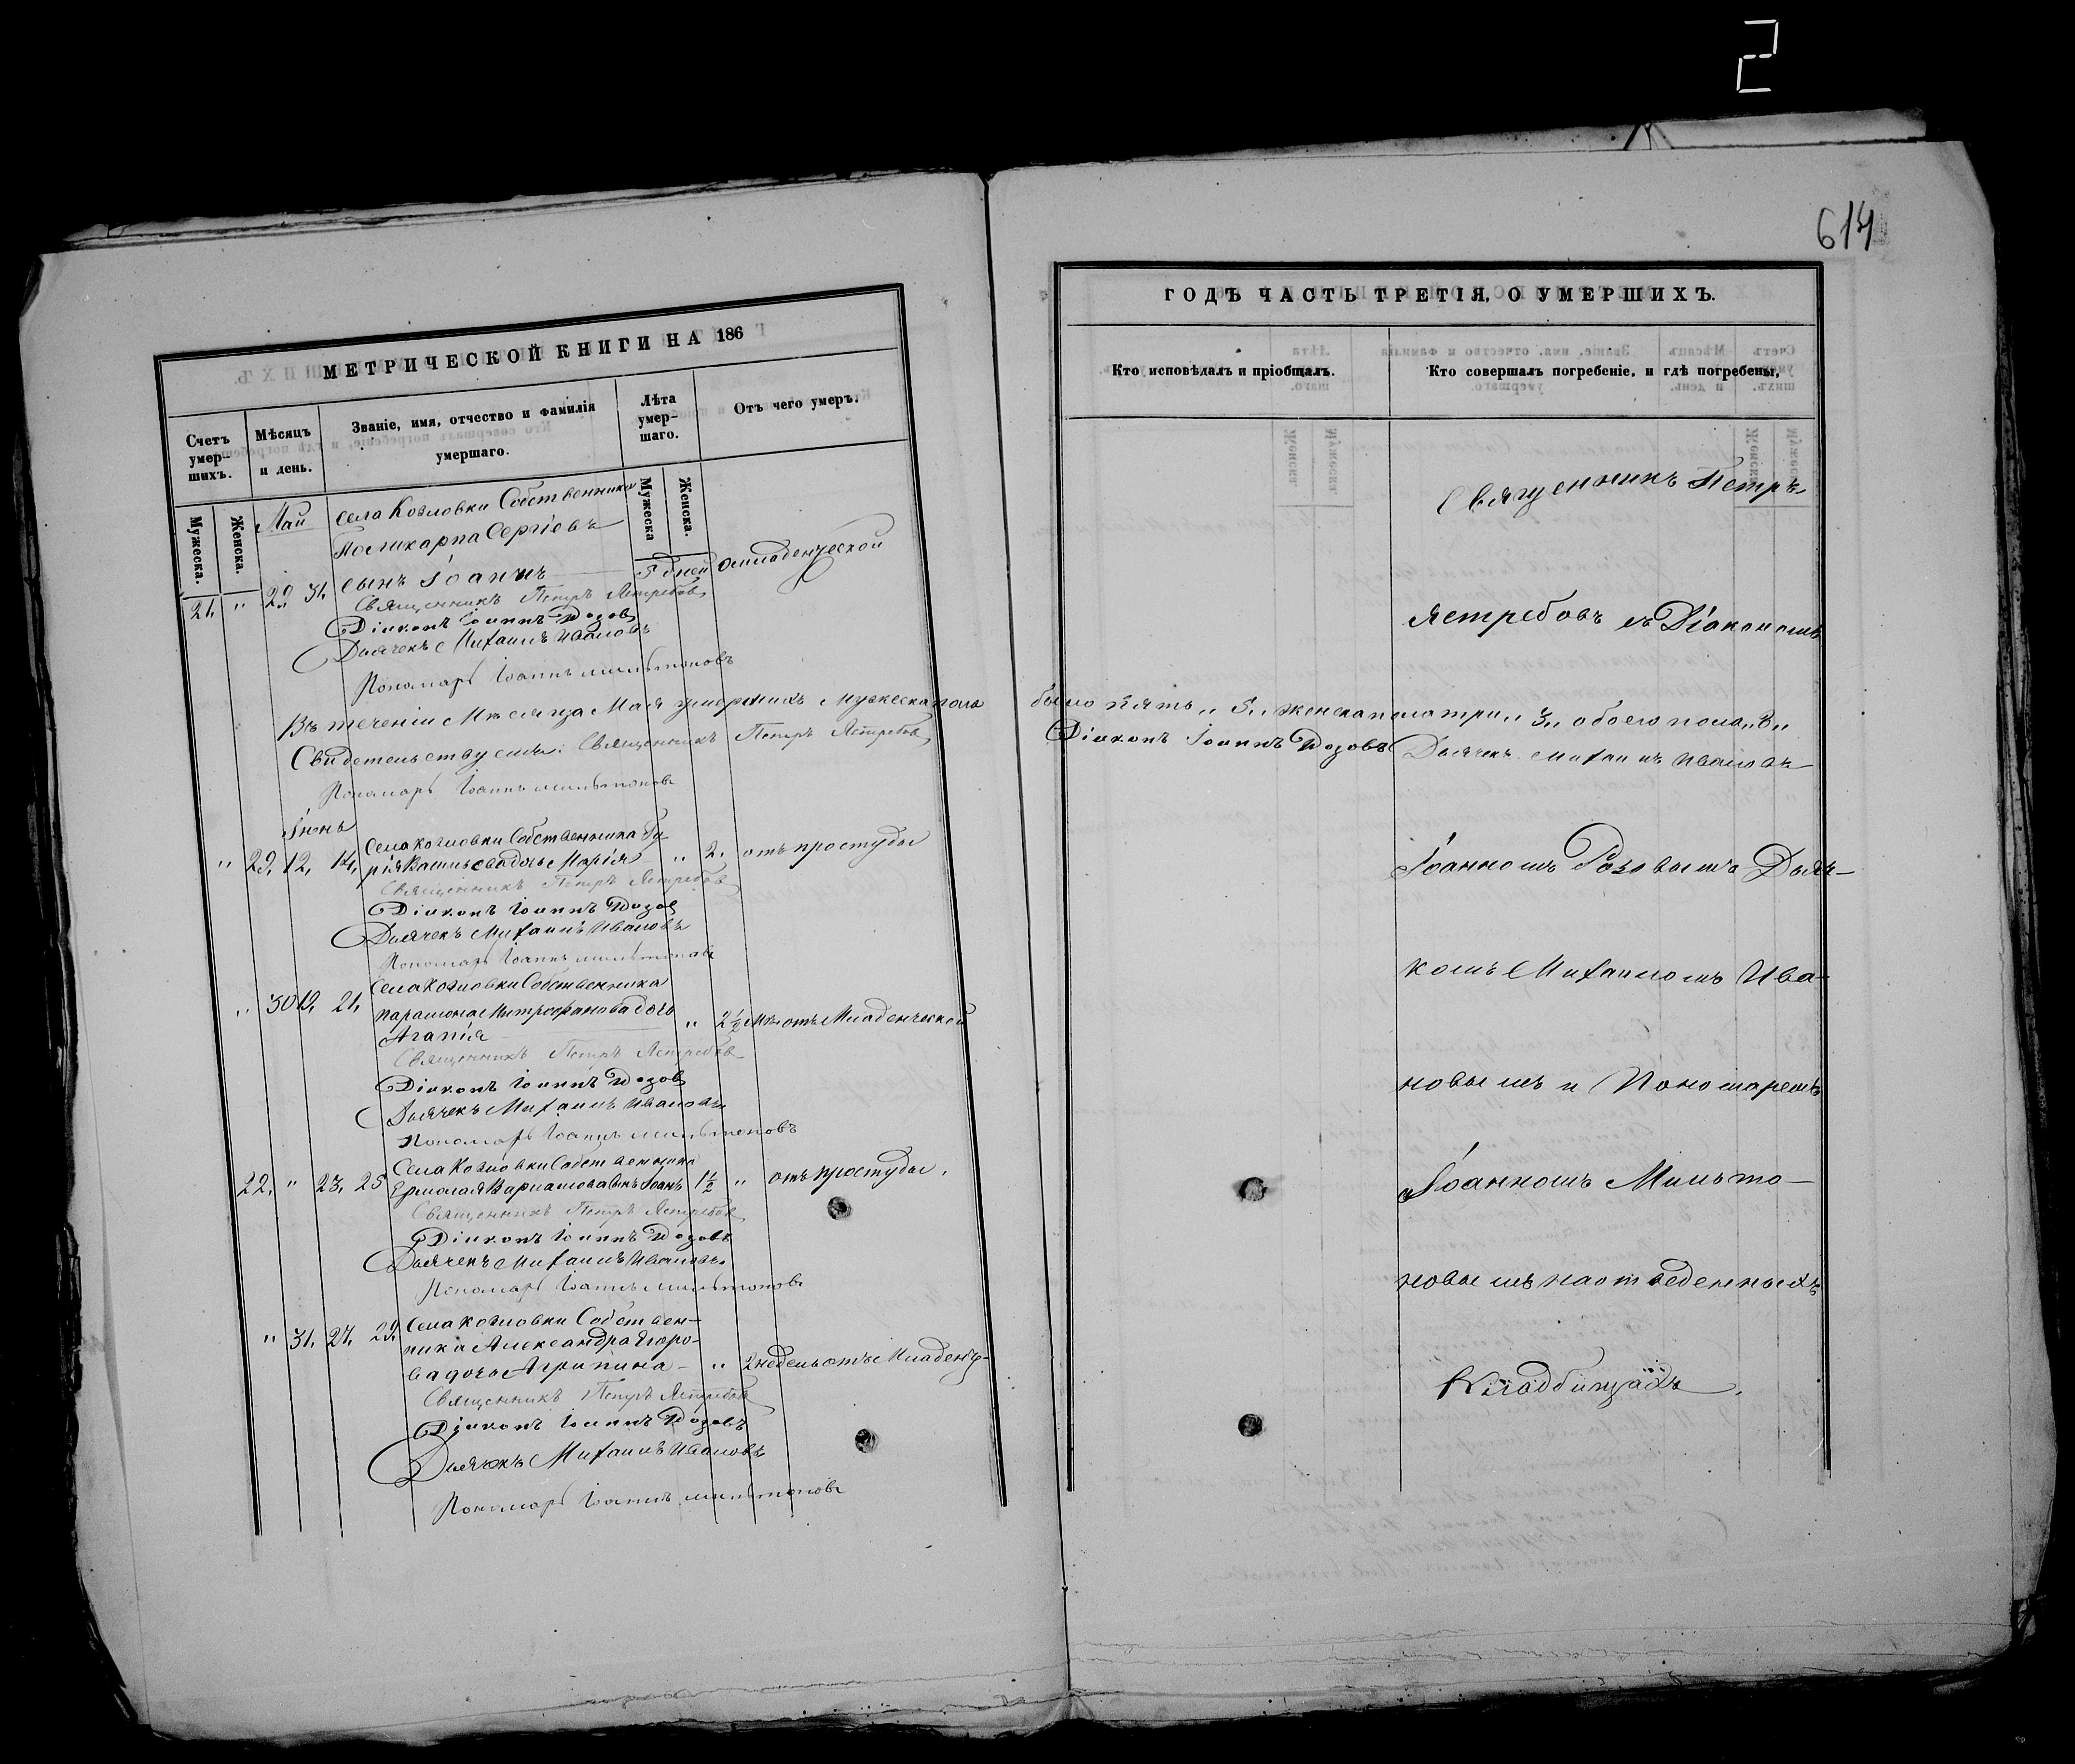 2
614
МЕТРИЧЕСКОЙ КНИГИ НА 186
Счетъ умер-шихъ.
Мѣсяцъ и день.
Званіе, имя, отчество и фамилія умершаго.
Лѣта умер-шаго.
Отъ чего умеръ.
Мужеска.
Женска.
Мужеска
Женска.
Май
Села Козловки Собственника
Поликарпа Сергіева
21. " 29. 31. сынъ Іоаннъ 5 дней отъ младенческой
Священникъ Петръ Ястребовъ
Діаконъ Іоаннъ Розовъ
Дьячекъ Михаилъ Ивановъ
Пономарь Іоаннъ Мильтоновъ
Въ теченіи Мѣсяца Мая умершихъ мужеска пола
Свидетельствуемъ: Священникъ Петръ Ястребовъ
Пономарь Іоаннъ Мильтоновъ
Іюнь
Села Козловки Собственника Гу-
" 29. 12. 14. рія Васильева дочь Марія " 2. отъ простуды
Священникъ Петръ Ястребовъ
Діаконъ Іоаннъ Розовъ
Дьячекъ Михаилъ Ивановъ
Пономарь Іоаннъ Мильтоновъ
Села Козловки Собственника
" 30 19. 21. Парамона Митрофанова дочь
Агапія " 2½ мѣ. отъ Младенческой
Священникъ Петръ Ястребовъ
Діаконъ Іоаннъ Розовъ
Дьячекъ Михаилъ Ивановъ
Пономарь Іоаннъ Мильтоновъ
Села Козловки Собственника
22. " 23. 25 Ермолая Варламова сынъ Іоанъ 1½ " отъ простуды.
Священникъ Петръ Ястребовъ
Діаконъ Іоаннъ Розовъ
Дьячекъ Михаилъ Ивановъ
Пономарь Іоаннъ Мильтоновъ
Села Козловки Собствен-
" 31. 27. 29. ника Александра Егоро-
ва дочь Агрипина " 2 недель отъ Младенч-
Священникъ Петръ Ястребовъ
Діаконъ Іоаннъ Розовъ
Дьячекъ Михаилъ Ивановъ
Пономарь Іоаннъ Мильтоновъ
ГОДЪ ЧАСТЬ ТРЕТІЯ, О УМЕРШИХЪ.
Кто исповѣдалъ и пріобщалъ.
Кто совершалъ погребеніе, и гдѣ погребены,
Священникъ Петръ
Ястребовъ съ Діакономъ
было пять „ 5 „ женска пола три „ 3 „ обоего пола „ 8 „
Діаконъ Іоаннъ Розовъ Дьячекъ Михаилъ Ивановъ
Іоанномъ Розовымъ Дьяч-
комъ Михаиломъ Ива-
новымъ и Пономаремъ
Іоанномъ Мильто-
новымъ на отведенныхъ
Кладбищахъ.